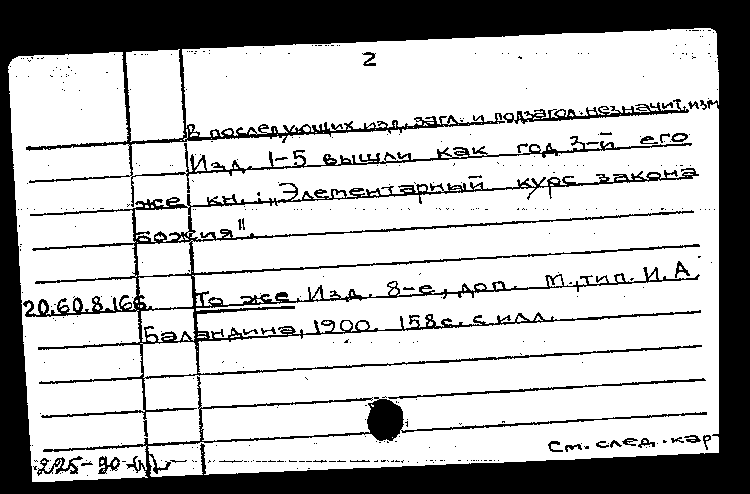 2
В последующих изд. загл. и подзагол. незначит. изм
Изд. 1-5 вышли как год 3-й его
же кн.: „Элементарный курс закона
божия".
20.60.8.166. То же. Изд. 8-е, доп. М., тип. И. А.
Баландина, 1900. 158с. с илл.
См. след. кар
225-90